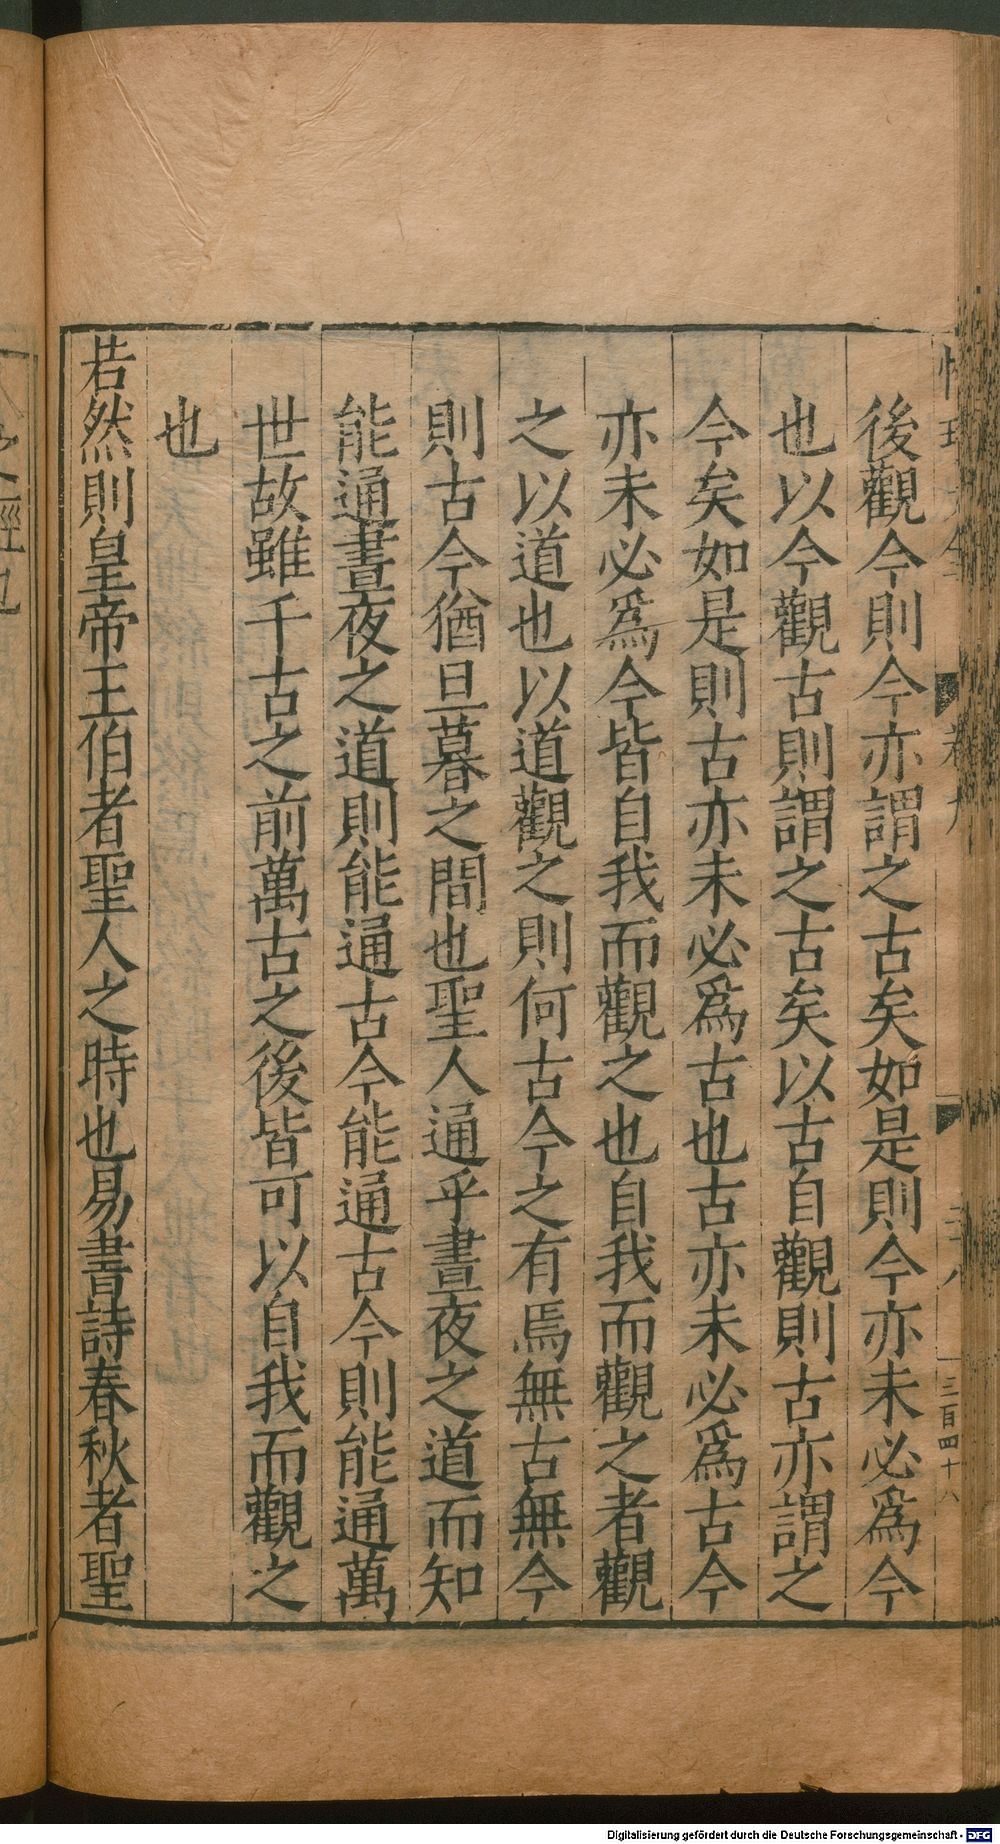 後觀今則今亦謂之古矣如是則今亦未必爲今
也以今觀古則謂之古矣以古自觀則古亦謂之
今矣如是則古亦未必爲古也古亦未必爲古今
亦未必爲今皆自我而觀之也自我而觀之者觀
之以道也以道觀之則何古今之有焉無古無今
則古今猶旦暮之間也聖人通乎晝夜之道而知
能通晝夜之道則能通古今能通古今則能通萬
世故雖千古之前萬古之後皆可以自我而觀之
也
若然則皇帝王伯者聖人之時也易書詩春秋者聖
三百四十八
之經也
Digitalisierung gefördert durch die Deutsche Forschungsgemeinschaft - DFG